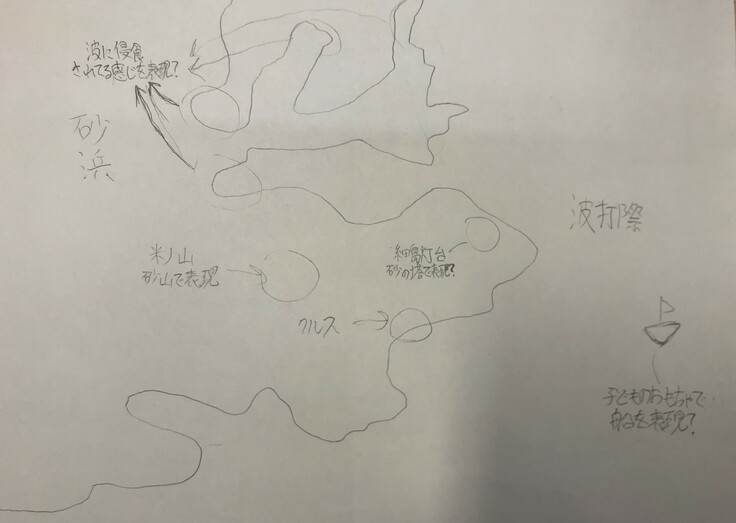 波に侵食
されてる感じを表現?
砂
浜
波打際
米ノ山
砂山で表現
細島灯台
砂の塔で表現?
クルス
子どものおもちゃで
船を表現?